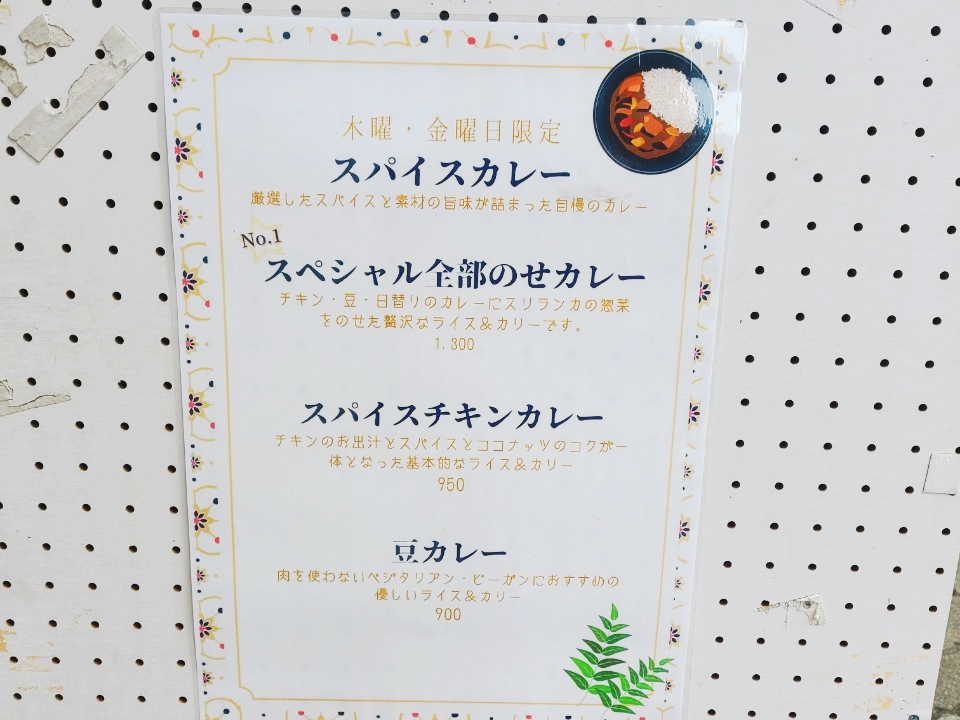 木曜・金曜日限定
スパイスカレー
厳選したスパイスと素材の旨味が詰まった自慢のカレー
No.1
スペシャル全部のせカレー
チキン・豆・日替りのカレーにスリランカの惣菜
をのせた贅沢なライス&カリーです。
1,300
スパイスチキンカレー
チキンのお出汁とスパイスとココナッツのコクが一
体となった基本的なライス&カリー
950
豆カレー
肉を使わないベジタリアン・ビーガンにおすすめの
優しいライス&カリー
900